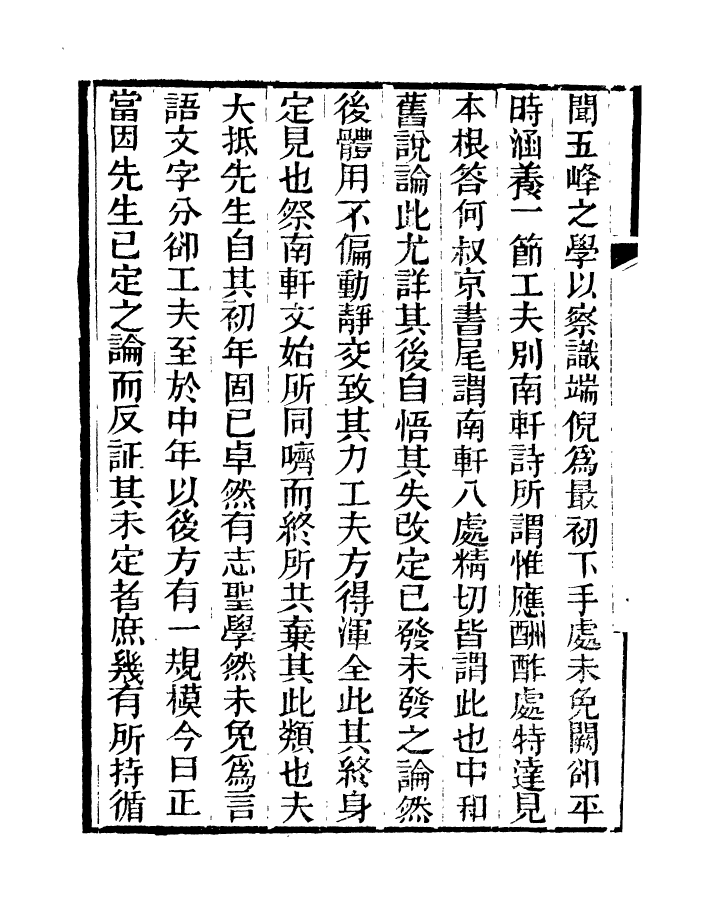 聞五峰之學以察識端倪爲最初下手處未免闕卻平
時涵養一節工夫別南軒詩所謂惟應酬酢處特達見
本根答何叔京書尾謂南軒入處精切皆謂此也中和
舊說論此尤詳其後自悟其失改定已發未發之論然
後體用不偏動靜交致其力工夫方得渾全此其終身
定見也祭南軒文始所同嚌而終所共棄其此類也夫
大抵先生自其初年固已卓然有志聖學然未免爲言
語文字分卻工夫至於中年以後方有一規模今日正
當因先生已定之論而反証其未定者庶幾有所持循